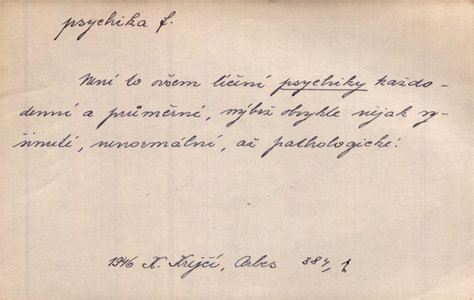 psychika f.
Není to ovšem líčení psychiky každo-
denní a průměrné, nýbrž obvykle nějak vy-
šinuté, nenormální, až pathologické.
1946 K. Krejčí, Arbes 384,